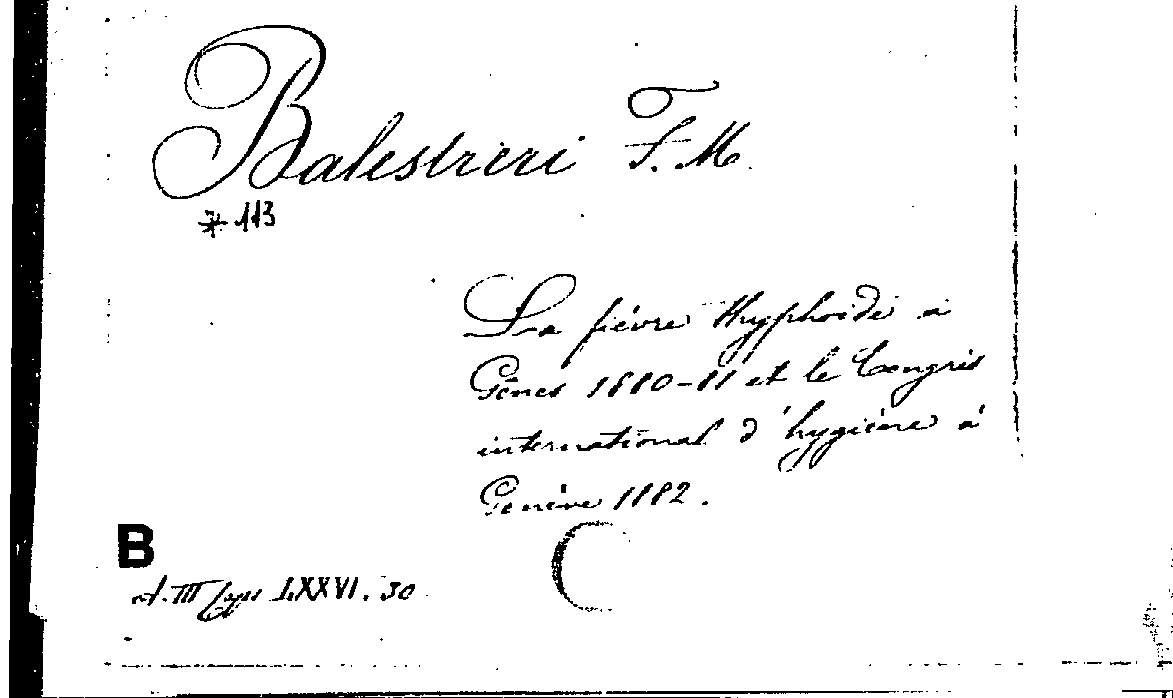 Balestreri F. M.
* 113
La fièvre thyphoïde à
Gênes 1880-81 et le Congrès
international d'hygiène à
Genève 1882.
B
st. III LXXVI. 30